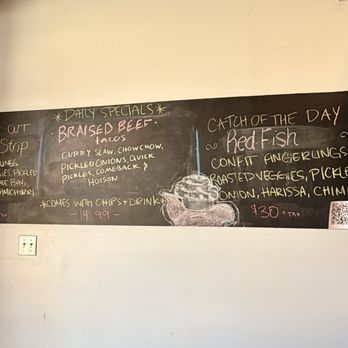 CUT
Strip
*DAILY SPECIALS*
- BRAISED BEEF -
tacos
CURRY SLAW, CHOWCHOW,
PICKLED ONIONS, QUICK
PICKLES, COMEBACK &
HOISON
*COMES WITH CHIPS + DRINK*
- 14.99 -
CATCH OF THE DAY
Red Fish
CONFIT FINGERLINGS
ROASTED VEGGIES, PICKLE
ONION, HARISSA, CHIM
$30 + TAX